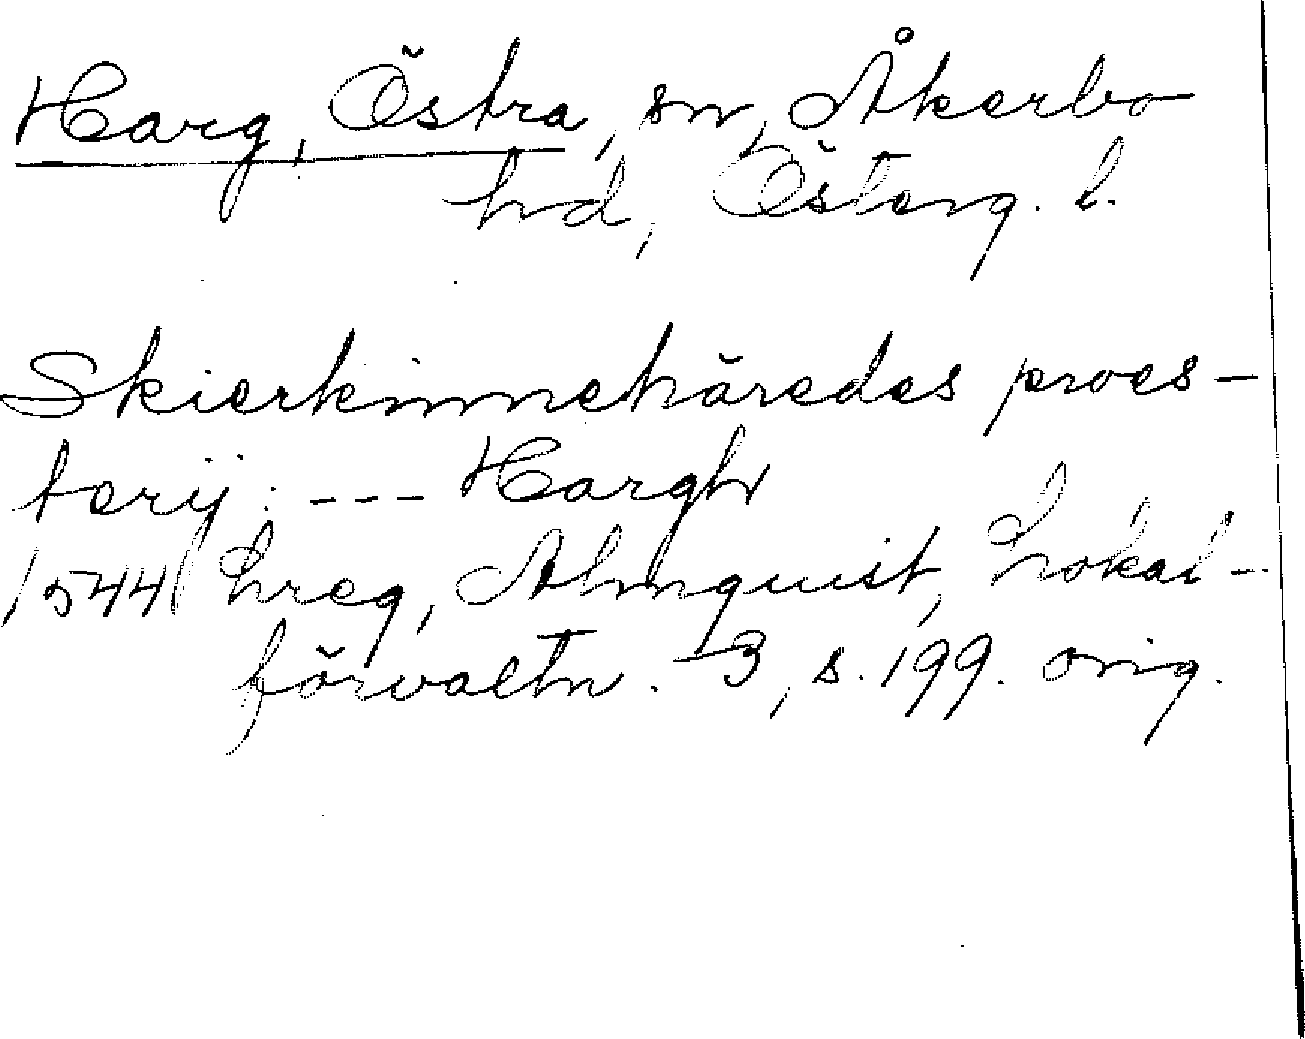 Harg, Östra, sn, Åkerbo
hd, Österg. l.
Skierkinnehäredes proes-
terij: --- Hargh
1544 Lreg, Almquist, Lokal-
förvaltn. 3, s. 199. orig.